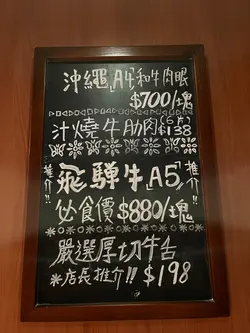 沖繩「A4」和牛肉眼
$700/塊
汁燒牛肋肉(6件)$138
推介!! 飛騨牛「A5」 推介!!
必食價$880/塊
嚴選厚切牛舌
*店長推介!! $198